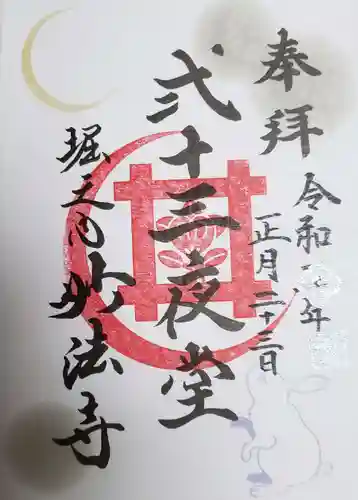 奉拝
令和 年
正月二十三日
弐十三夜堂
堀之内妙法寺